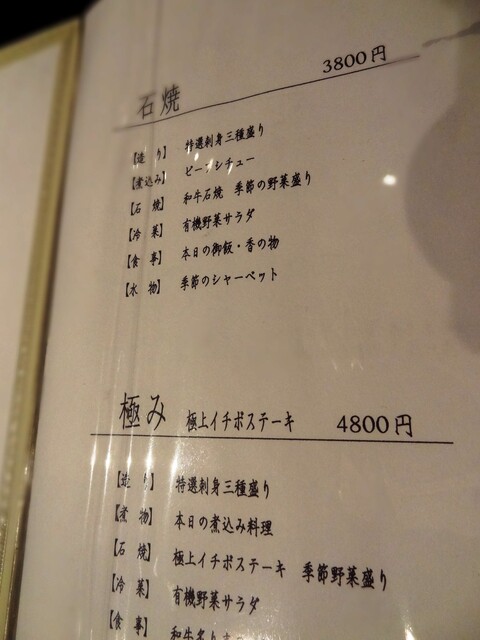 石焼 3800円
【造り】 特選刺身三種盛り
【煮込み】 ビーフシチュー
【石焼】 和牛石焼 季節の野菜盛り
【冷菜】 有機野菜サラダ
【食事】 本日の御飯・香の物
【水物】 季節のシャーベット
極み 極上イチボステーキ 4800円
【造り】 特選刺身三種盛り
【煮物】 本日の煮込み料理
【石焼】 極上イチボステーキ 季節野菜盛り
【冷菜】 有機野菜サラダ
【食事】 和牛